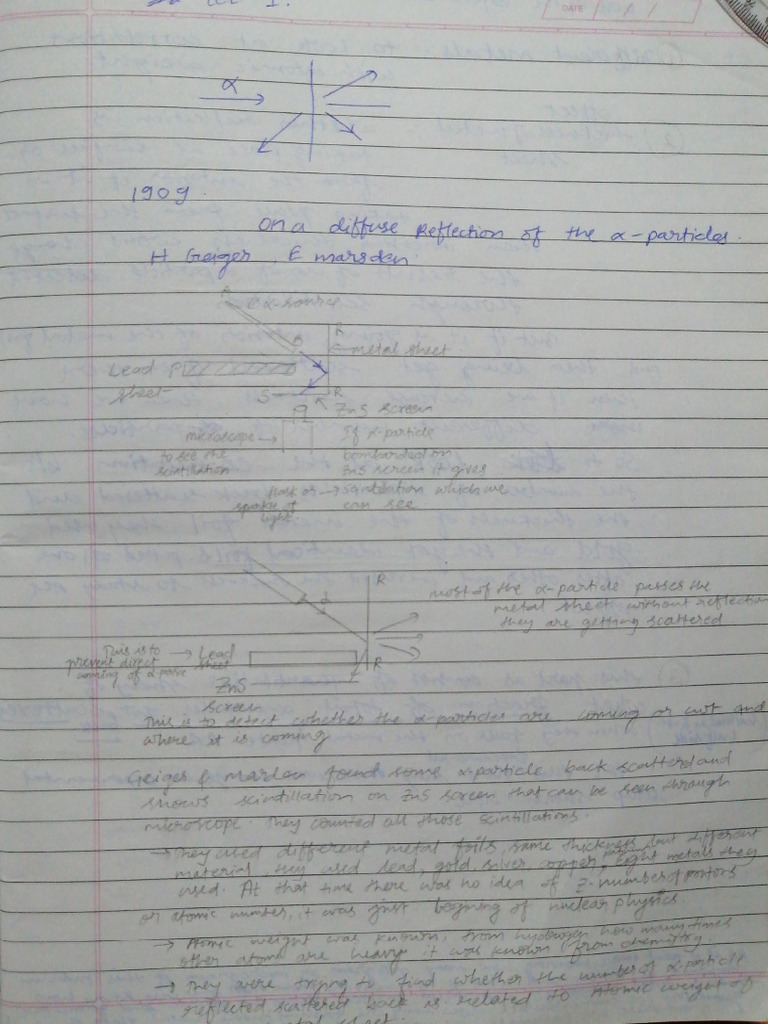 DATE
α
1909.
On a diffuse Reflection of the α-particles.
H Geiger, E marsden
α-source
R
metal sheet
Lead P
sheet
S
R
ZnS screen
microscope →
to see the
scintillation
If α-particle
bombarded on
ZnS screen it gives
→ scintillation which are
can see
sparks of
light
R
most of the α-particle passes the
metal sheet without reflection
they are getting scattered
This is to → Lead
prevent direct sheet
coming of α-
R
ZnS
screen
This is to detect whether the α-particles are coming or not and
where it is coming
Geiger & Marden found some α-particle back scatterd and
shows scintillation on ZnS screen that can be seen through
microscope. They counted all those scintillations.
→ They used different metal foils, same thickness but different
material, they used lead, gold silver, copper, eight metals they
used. At that time there was no idea of Z-number of protons
or atomic number, it was just begning of nuclear physics
→ Atomic weight was known, from hydrogen how many times
other atom are heavy it was known from chemistry
→ They were trying to find whether the number of α-particle
reflected scattered back is related to Atomic weight of